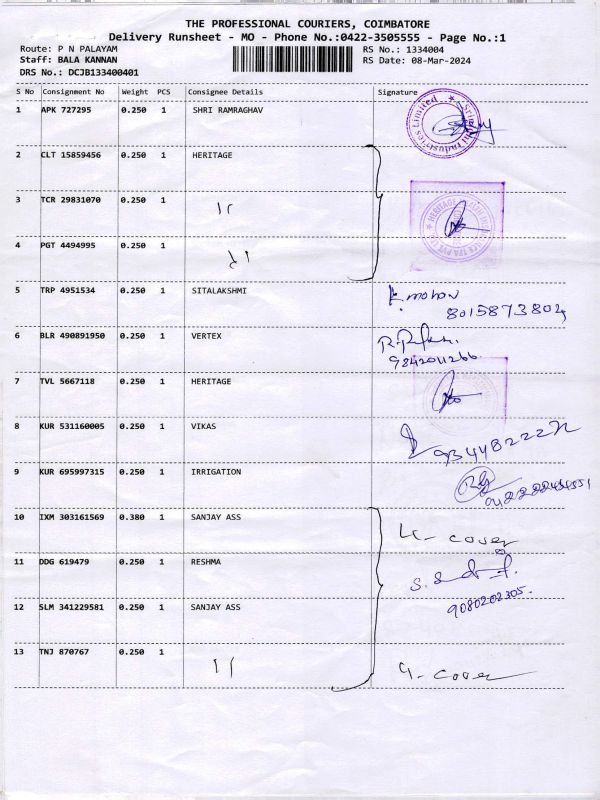 THE PROFESSIONAL COURIERS, COIMBATORE
Delivery Runsheet - MO - Phone No.:0422-3505555 - Page No.:1
Route: P N PALAYAM RS No.: 1334004
Staff: BALA KANNAN RS Date: 08-Mar-2024
DRS No.: DCJB133400401
S No Consignment No Weight PCS Consignee Details Signature
1 APK 727295 0.250 1 SHRI RAMRAGHAV
2 CLT 15859456 0.250 1 HERITAGE
3 TCR 29831070 0.250 1
4 PGT 4494995 0.250 1
5 TRP 4951534 0.250 1 SITALAKSHMI K.mohan
8015873802
6 BLR 490891950 0.250 1 VERTEX
9842011266
7 TVL 5667118 0.250 1 HERITAGE
8 KUR 531160005 0.250 1 VIKAS
9 KUR 695997315 0.250 1 IRRIGATION
10 IXM 303161569 0.380 1 SANJAY ASS 4- cover
11 DDG 619479 0.250 1 RESHMA
12 SLM 341229581 0.250 1 SANJAY ASS 9080202305.
13 TNJ 870767 0.250 1 4- cover